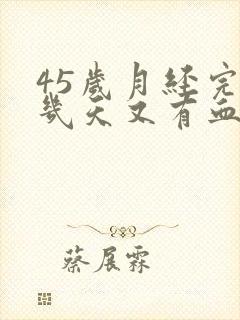 45歲月經完
幾天又有血
蔡展霖